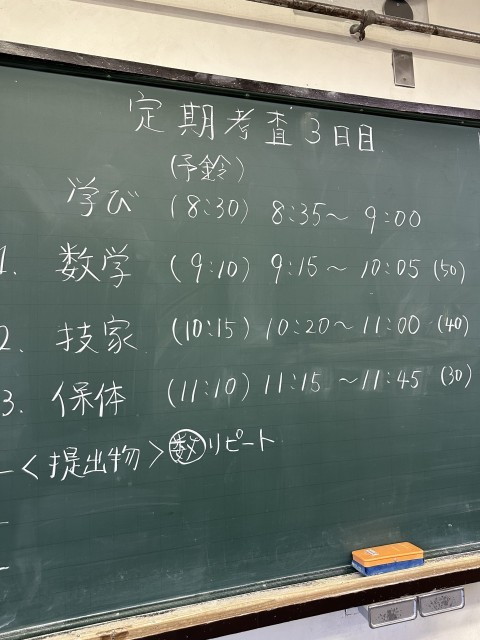 定期考査3日目
(予鈴)
学び (8:30) 8:35～ 9:00
1. 数学 (9:10) 9:15～ 10:05 (50)
2. 技家 (10:15) 10:20～ 11:00 (40)
3. 保体 (11:10) 11:15 ～11:45 (30)
<提出物> 数リピート